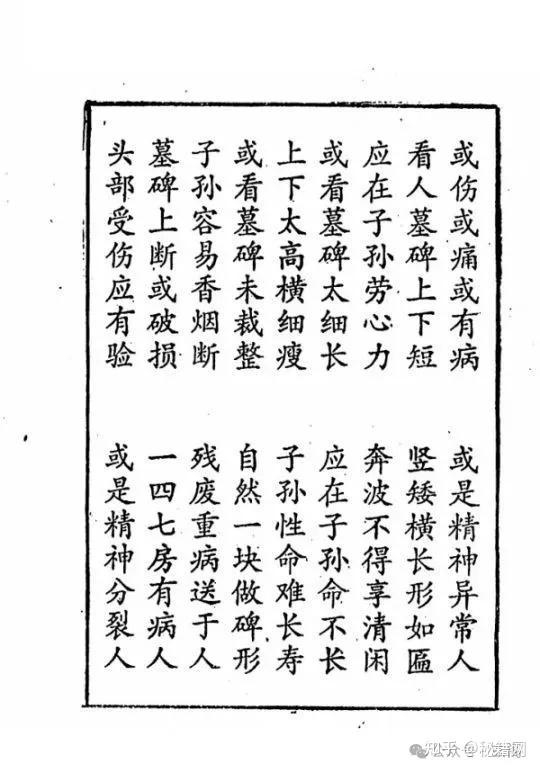 或伤或痛或有病
或是精神异常人
看人墓碑上下短
竖矮横长形如匾
应在子孙劳心力
奔波不得享清闲
或看墓碑太细长
应在子孙命不长
上下太高横细瘦
子孙性命难长寿
或看墓碑未裁整
自然一块做碑形
子孙容易香烟断
残废重病送于人
墓碑上断或破损
一四七房有病人
头部受伤应有验
或是精神分裂人
@秘籍网